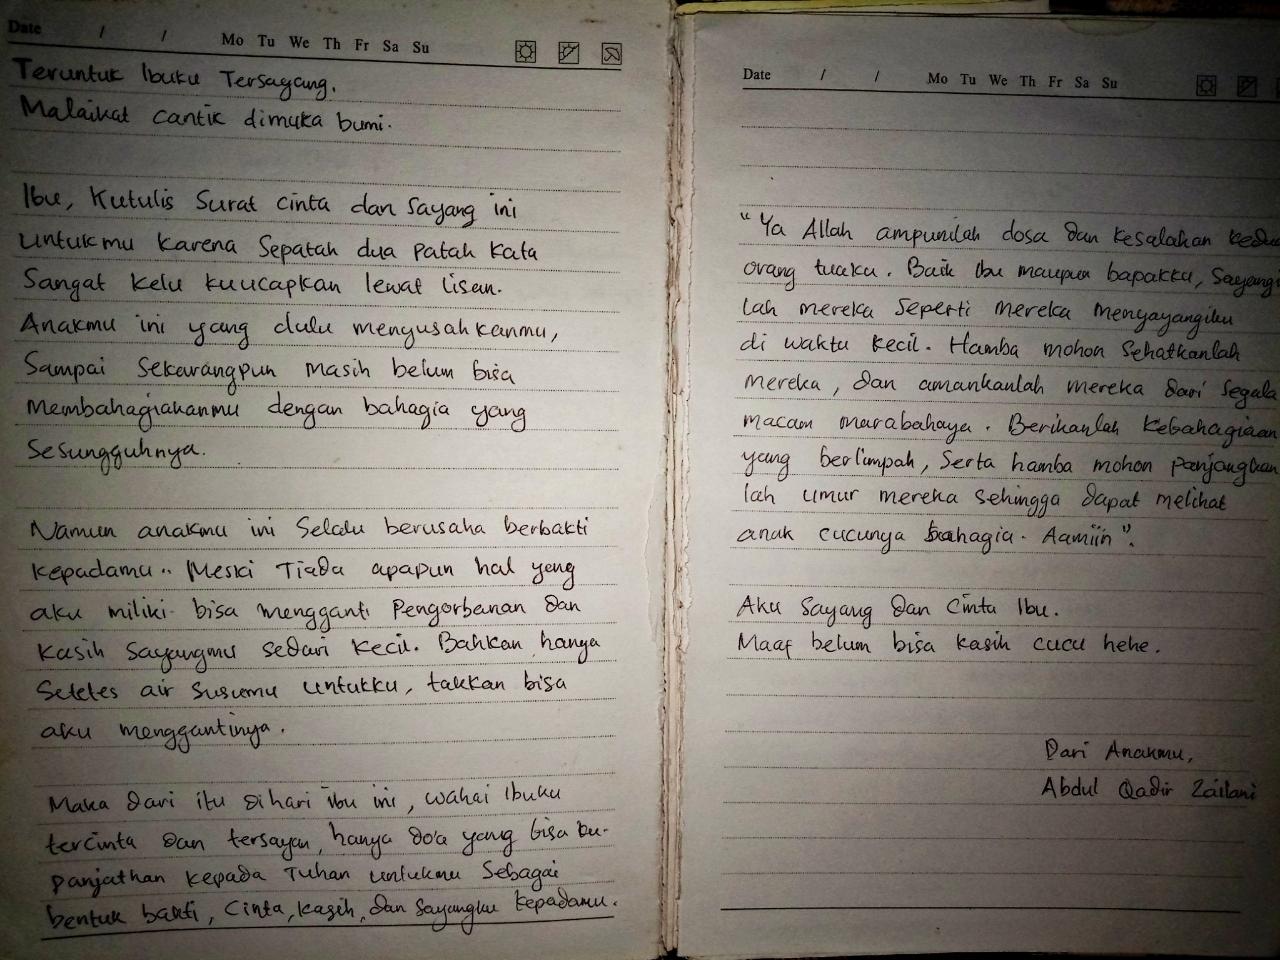 Date / / Mo Tu We Th Fr Sa Su
Teruntuk Ibuku Tersayang.
Malaikat cantik dimuka bumi.
Ibu, Kutulis Surat cinta dan Sayang ini
untukmu karena Sepatah dua patah kata
Sangat kelu kuucapkan lewat lisan.
Anakmu ini yang dulu menyusahkanmu,
Sampai Sekarangpun masih belum bisa
membahagiakanmu dengan bahagia yang
Sesungguhnya.
Namun anakmu ini Selalu berusaha berbakti
kepadamu.. Meski Tiada apapun hal yang
aku miliki bisa mengganti Pengorbanan dan
kasih Sayangmu sedari kecil. Bahkan hanya
Setetes air susumu untukku, takkan bisa
aku menggantinya.
Maka dari itu dihari ibu ini, wahai Ibuku
tercinta dan tersayan, hanya do'a yang bisa ku-
panjatkan kepada Tuhan untukmu Sebagai
bentuk bakti, Cinta, kasih, dan Sayangku kepadamu.
Date / / Mo Tu We Th Fr Sa Su
"Ya Allah ampunilah dosa dan kesalahan kedua
orang tuaku. Baik Ibu maupun bapakku, Sayangi
lah mereka Seperti mereka menyayangiku
di waktu kecil. Hamba mohon Sehatkanlah
mereka, dan amankanlah mereka dari segala
macam marabahaya. Berikanlah kebahagiaan
yang berlimpah, Serta hamba mohon panjangkan
lah umur mereka sehingga dapat melihat
anak cucunya bahagia. Aamiin".
Aku Sayang dan Cinta Ibu.
Maaf belum bisa kasih cucu hehe.
Dari Anakmu,
Abdul Qadir Zailani